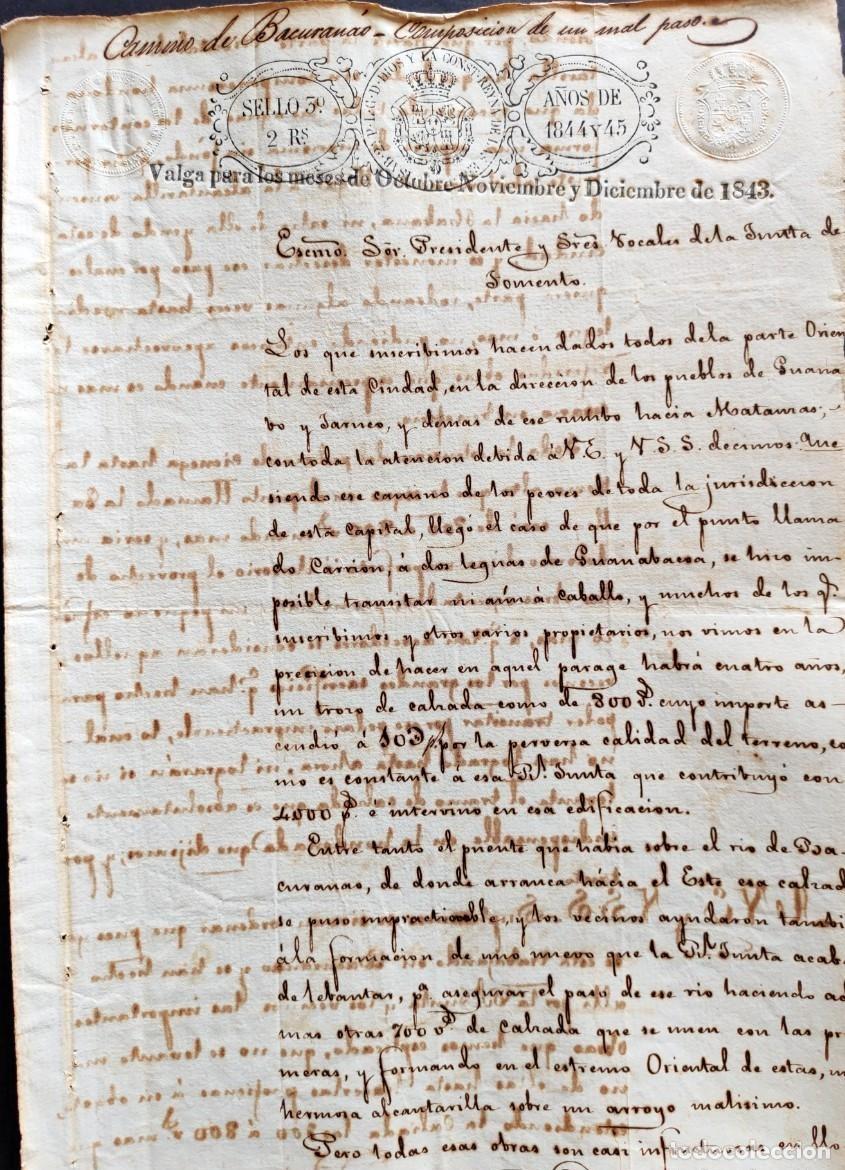 Camino de Bacuranao – Composicion de un mal paso.
SELLO 3º
2 Rs
AÑOS DE
1844 Y 45
Valga para los meses de Octubre Noviembre y Diciembre de 1843.
Escmo. Sõr. Presidente y Sres. Vocales de la Junta de
Fomento.
Los que suscribimos hacendados todos dela parte Orien
tal de esta Ciudad, en la direccion de los pueblos de Guana
bo y Jaruco, y demas de ese rumbo hacia Matanzas,
con toda la atencion debida á V.E. y V.S.S. decimos. Que
siendo ese camino de los peores de toda la jurisdiccion
de esta Capital, llegó el caso de que por el punto llama
do Carrion, á dos leguas de Guanabacoa, se hizo im
posible transitar ni aún á caballo, y muchos de los q.
suscribimos y otros varios propietarios, nos vimos en la
precision de hacer en aquel parage habrá cuatro años,
un trozo de calzada como de 800 cuyo importe as-
cendio á por la perversa calidad del terreno, co
mo es constante á esa Rl. Junta que contribuyó con
4000 p. é intervino en esa edificacion.
Entre tanto el puente que habia sobre el rio de Ba-
curanao, de donde arranca hácia el Este esa calzad
se puso impracticable, y los vecinos ayudaron tambi
á la formacion de uno nuevo que la Rl. Junta acab
de lebantar, pa. asegurar el paso de ese rio haciendo ad
mas otras 700 v. de calzada que se unen con las pr
meras, y formando en el estremo Oriental de estas, u
hermosa alcantarilla sobre un arroyo malisimo.
Pero todas esas obras son casi en
todocoleccion